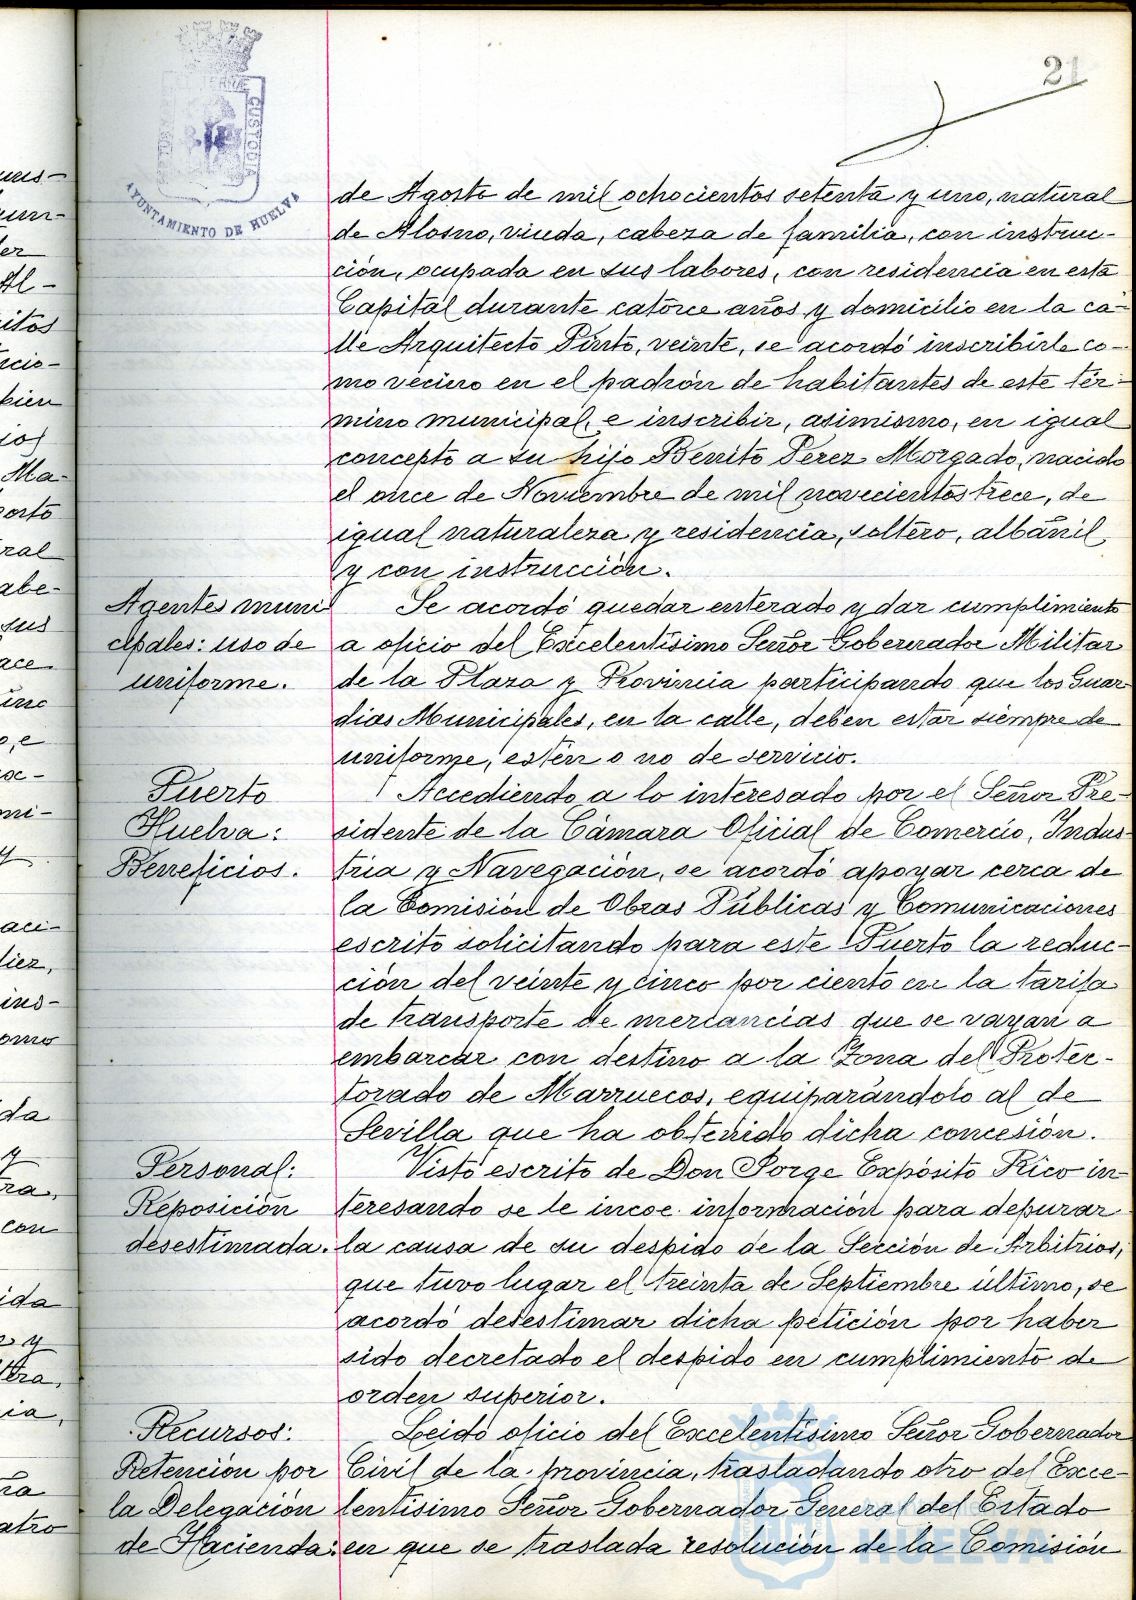 21
AYUNTAMIENTO DE HUELVA
CUSTODIA
de Agosto de mil ochocientos setenta y uno, natural
de Alosno, viuda, cabeza de familia, con instruc-
ción, ocupada en sus labores, con residencia en esta
Capital durante catorce años y domicilio en la ca-
lle Arquitecto Pinto, veinte, se acordó inscribirle co-
mo vecino en el padrón de habitantes de este tér-
mino municipal, e inscribir, asimismo, en igual
concepto a su hijo Benito Perez Morgado, nacido
el once de Noviembre de mil novecientos trece, de
igual naturaleza y residencia, soltero, albañil
y con instrucción.
Agentes muni
cipales: uso de
uniforme.
Se acordó quedar enterado y dar cumplimiento
a oficio del Excelentísimo Señor Gobernador Militar
de la Plaza y Provincia participando que los Guar-
dias Municipales, en la calle, deben estar siempre de
uniforme, estén o no de servicio.
Puerto
Huelva:
Beneficios.
Accediendo a lo interesado por el Señor Pre-
sidente de la Cámara Oficial de Comercio, Indus-
tria y Navegación, se acordó apoyar cerca de
la Comisión de Obras Públicas y Comunicaciones
escrito solicitando para este Puerto la reduc-
ción del veinte y cinco por ciento en la tarifa
de transporte de mercancías que se vayan a
embarcar con destino a la Zona del Protec-
torado de Marruecos, equiparándolo al de
Sevilla que ha obtenido dicha concesión.
Personal:
Reposición
desestimada.
Visto escrito de Don Jorge Expósito Rico in-
teresando se le incoe información para depurar
la causa de su despido de la Sección de Arbitrios,
que tuvo lugar el treinta de Septiembre último, se
acordó desestimar dicha petición por haber
sido decretado el despido en cumplimiento de
orden superior.
Recursos:
Retención por
la Delegación
de Hacienda:
Leido oficio del Excelentísimo Señor Gobernador
Civil de la provincia, trasladando otro del Exce-
lentísimo Señor Gobernador General del Estado
en que se traslada resolución de la Comisión
HUELVA